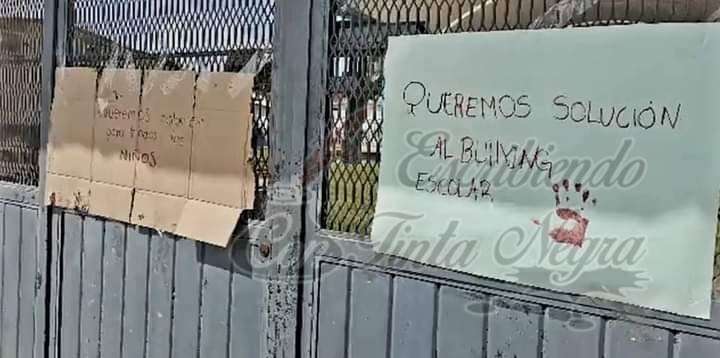 QUEREMOS
para todos los
NIÑOS
QUEREMOS SOLUCIÓN
AL BULLYING
ESCOLAR
Escribiendo
Con Tinta Negra